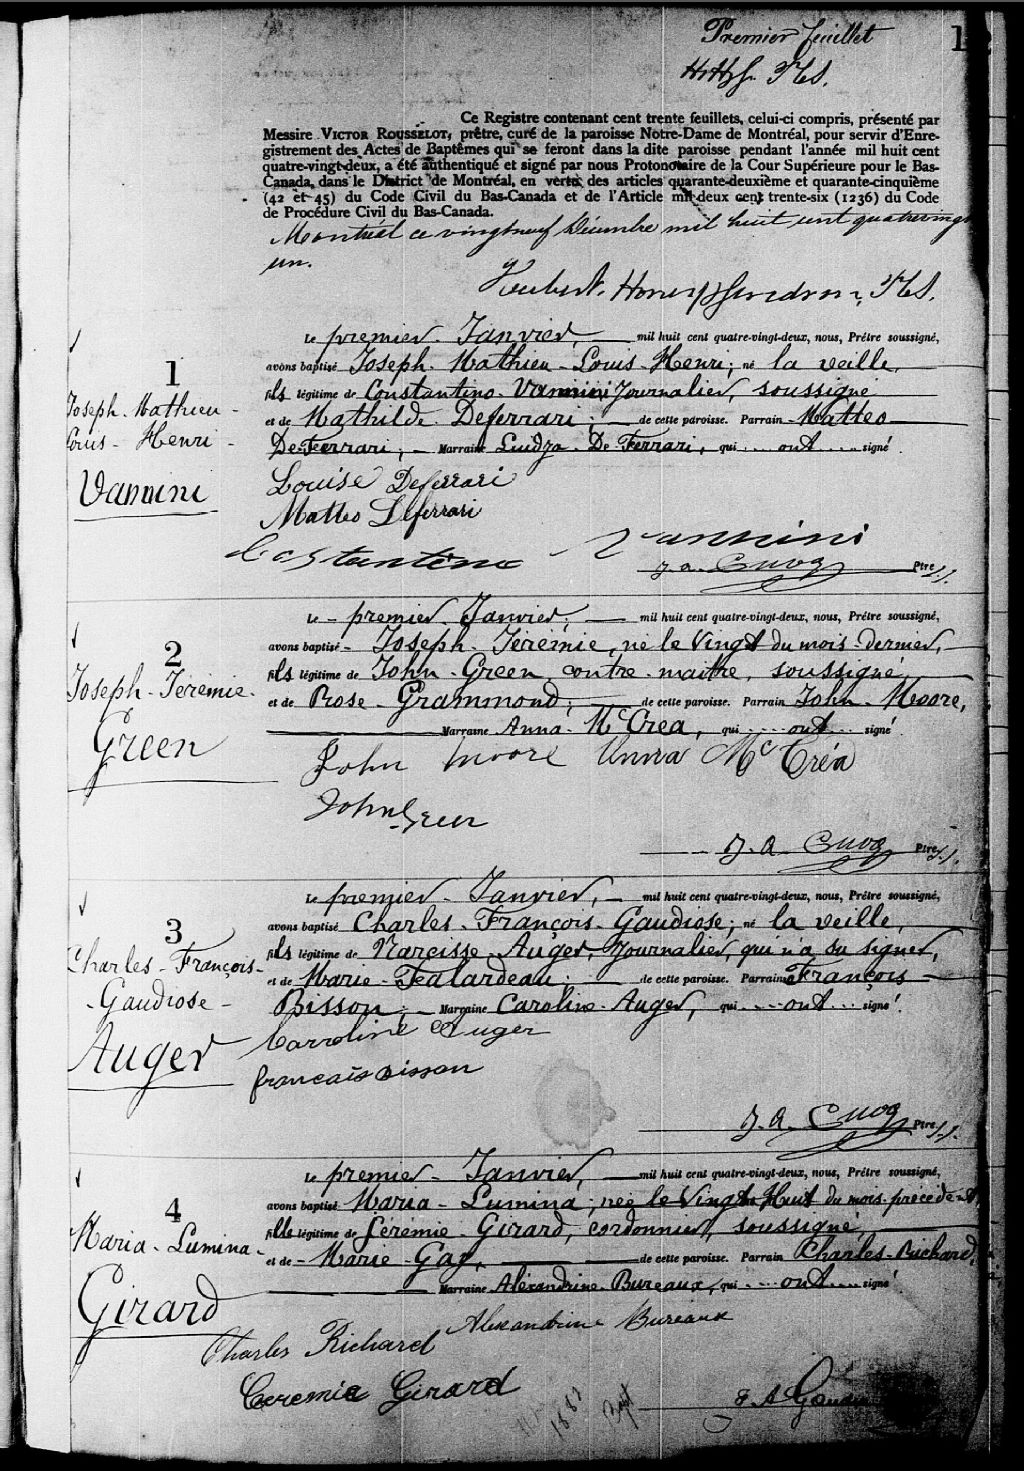 Premier feuillet
1
HHG. PCS.
Ce Registre contenant cent trente feuillets, celui-ci compris, présenté par
Messire VICTOR ROUSSELOT, prêtre, curé de la paroisse Notre-Dame de Montréal, pour servir d'Enre-
gistrement des Actes de Baptêmes qui se feront dans la dite paroisse pendant l'année mil huit cent
quatre-vingt-deux, a été authentiqué et signé par nous Protonotaire de la Cour Supérieure pour le Bas-
Canada, dans le District de Montréal, en vertu des articles quarante-deuxième et quarante-cinquième
(42 et 45) du Code Civil du Bas-Canada et de l'Article mil-deux cent trente-six (1236) du Code
de Procédure Civil du Bas-Canada.
Montréal ce vingtneuf Décembre mil huit cent quatrevingt
un.
Hubert, Honey & Gendron, PCS.
Le premier Janvier, mil huit cent quatre-vingt-deux, nous, Prêtre soussigné,
1
avons baptisé Joseph Mathieu Louis Henri; né la veille,
Joseph Mathieu
fils légitime de Constantino Vannini Journalier, soussigné
Louis Henri
et de Mathilde Deferrari; de cette paroisse. Parrain Matteo
Vannini
De Ferrari; Marraine Luidza De Ferrari, qui ont signé.
Louise Deferrari
Matteo Deferrari
Costantino Vannini
J. A. Cuoq Ptre S.S.
Le premier Janvier; mil huit cent quatre-vingt-deux, nous, Prêtre soussigné,
2
avons baptisé Joseph Jérémie, né le Vingt du mois dernier,
Joseph Jérémie
fils légitime de John Green, contre-maitre, soussigné,
Green
et de Rose Grammond; de cette paroisse. Parrain John Moore,
Marraine Anna McCrea, qui ont signé.
John Moore Anna Mc Créa
John Green
J. A. Cuoq Ptre S.S.
Le premier Janvier, mil huit cent quatre-vingt-deux, nous, Prêtre soussigné,
3
avons baptisé Charles François Gaudiose; né la veille,
Charles François
fils légitime de Narcisse Auger, Journalier, qui n'a su signer,
Gaudiose
et de Marie Fealardeau; de cette paroisse. Parrain François
Auger
Bisson; Marraine Caroline Auger, qui ont signé.
Carroline Auger
francais bisson
J. A. Cuoq Ptre S.S.
Le premier Janvier, mil huit cent quatre-vingt-deux, nous, Prêtre soussigné,
4
avons baptisé Maria Lumina; née le Vingt Huit du mois précédent,
Maria Lumina
fille légitime de Jérémie Girard, cordonnier, soussigné,
Girard
et de Marie Gay, de cette paroisse. Parrain Charles Richard,
Marraine Alexandrine Bureaux, qui ont signé.
Charles Richard Alexandrine Bureaux
Ceremie Girard
1882
Bapt